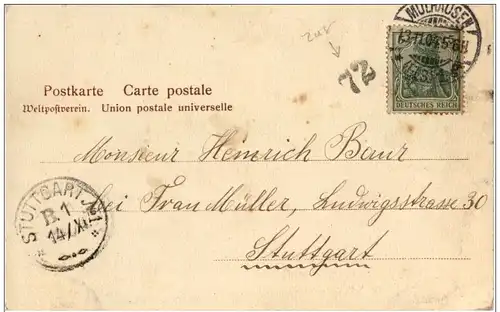 MÜLHAUSEN
13.11.04.5-6N
(ELS)
DEUTSCHES REICH
72
Postkarte Carte postale
Weltpostverein. Union postale universelle
Monsieur Heinrich Baur
bei Frau Müller, Ludwigsstrasse 30
Stuttgart
STUTTGART.
B.1
14/XI